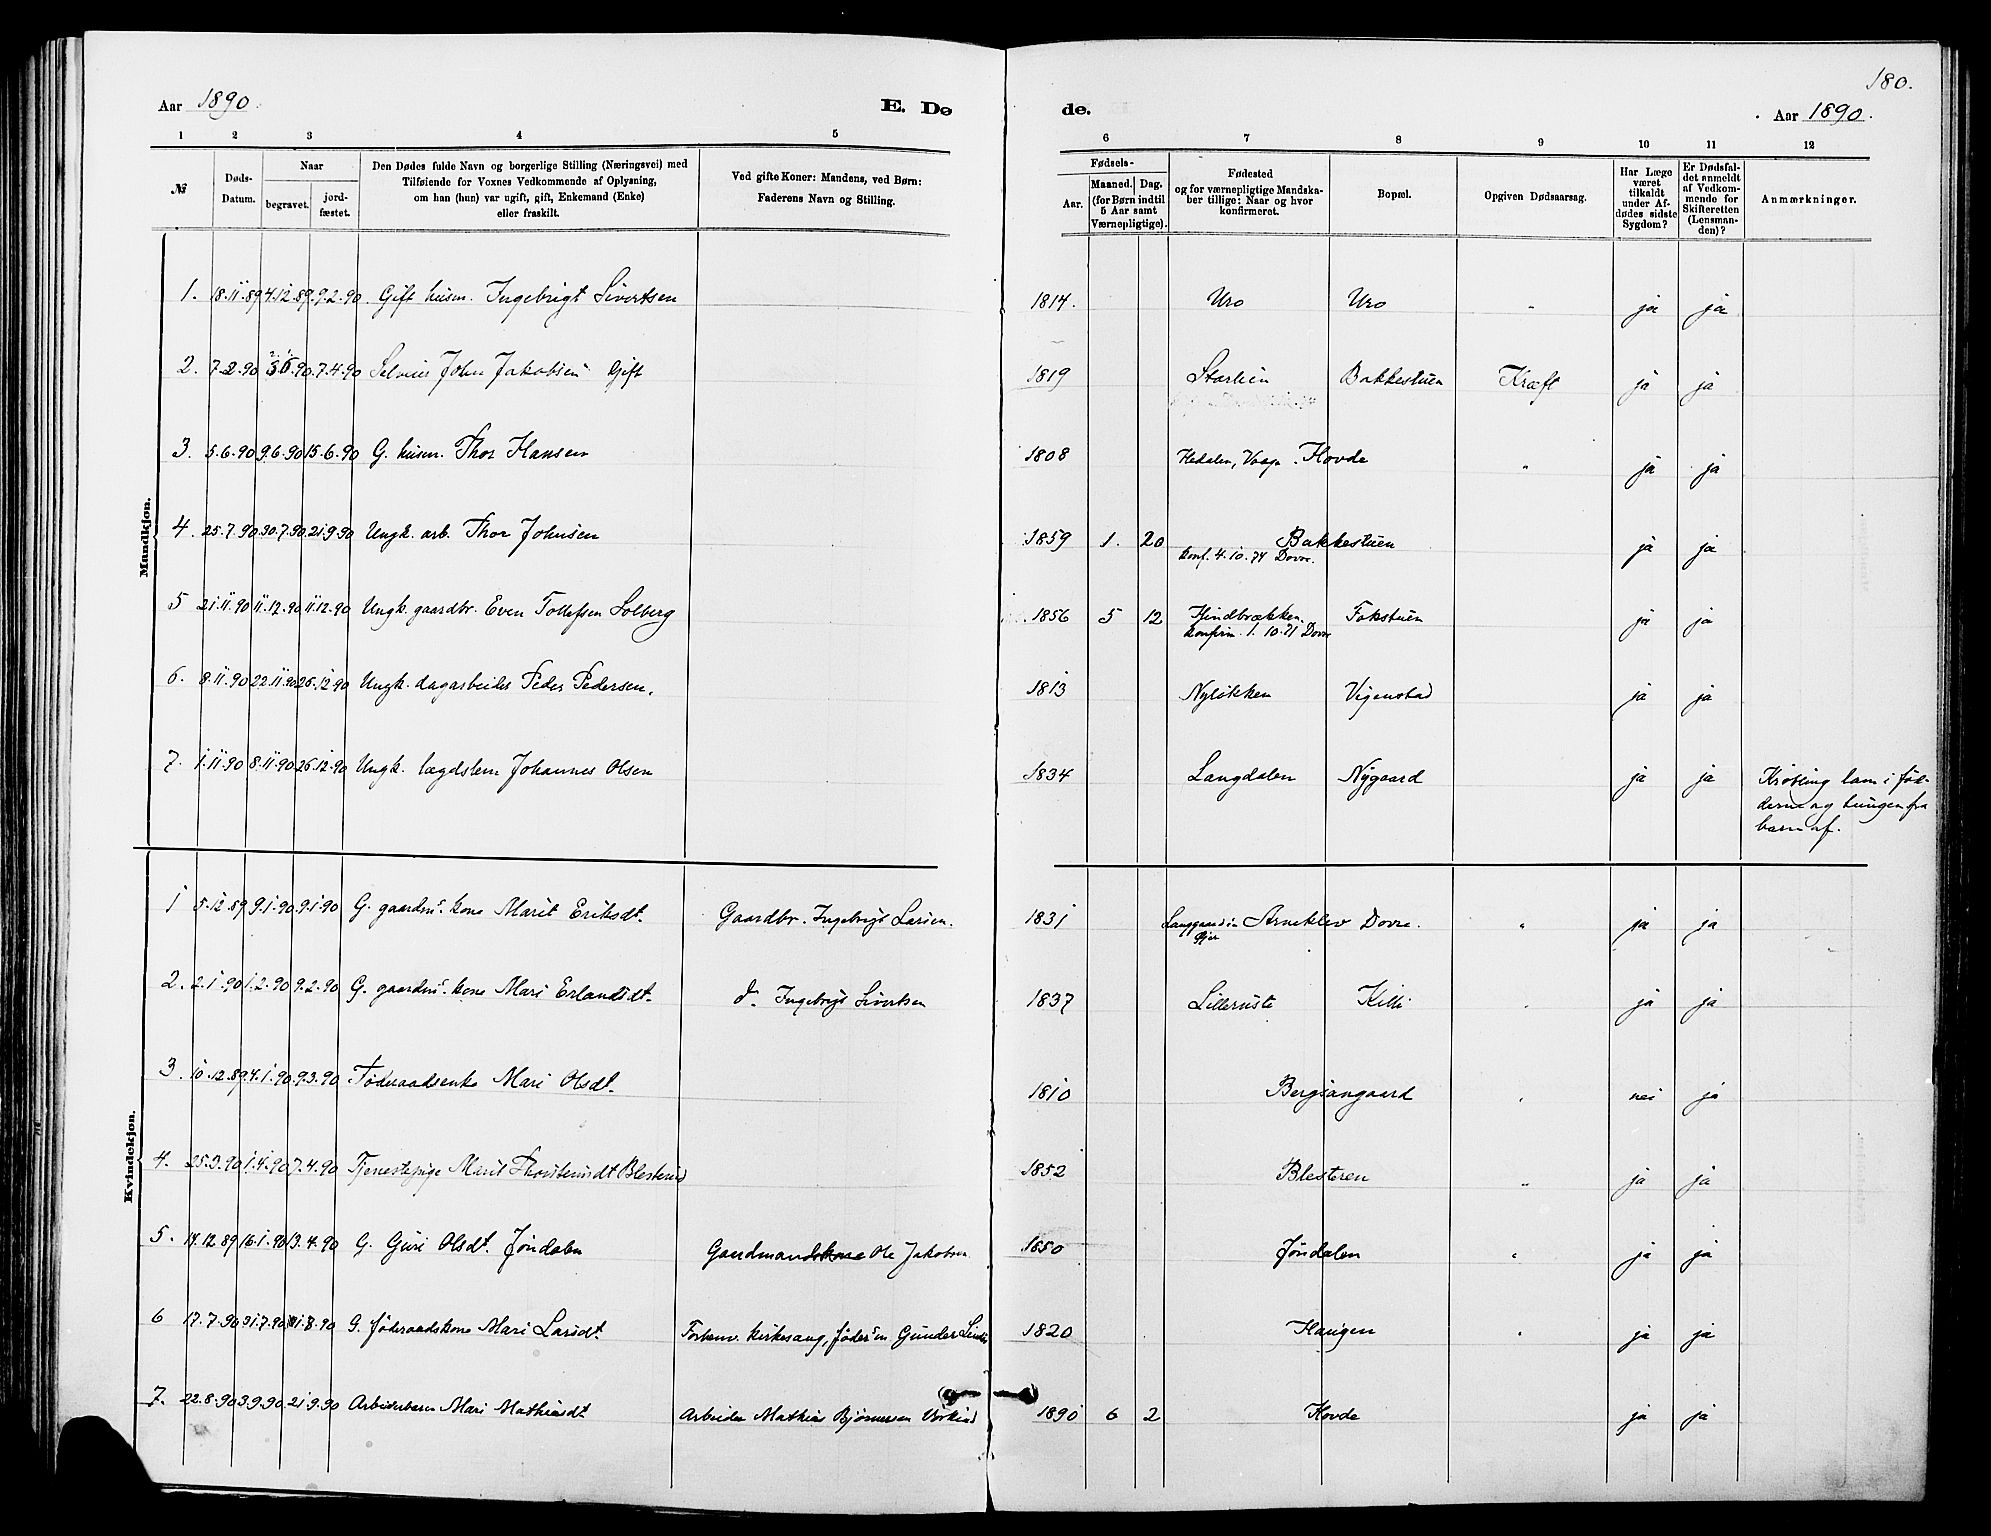 180.
Aar 1890. E. Dø de. Aar 1890.
1 2 3 4 5 6 7 8 9 10 11 12
№
Døds-
Datum.
Naar
begravet.
jord-
fæstet.
Den Dødes fulde Navn og borgerlige Stilling (Næringsvei) med
Tilføiende for Voxnes Vedkommende af Oplysning,
om han (hun) var ugift, gift, Enkemand (Enke)
eller fraskilt.
Ved gifte Koner: Mandens, ved Børn:
Faderens Navn og Stilling.
Fødsels-
Aar.
Maaned. Dag.
(for Børn indtil
5 Aar samt
Værnepligtige).
Fødested
og for værnepligtige Mandska-
ber tillige: Naar og hvor
konfirmeret.
Bopæl.
Opgiven Dødsaarsag.
Har Læge
været
tilkaldt
under Af-
dødes sidste
Sygdom?
Er Dødsfal-
det anmeldt
af Vedkom-
mende for
Skifteretten
(Lensman-
den)?
Anmærkninger.
Mandkjøn.
1. 18.11.89 4.12.89 9.2.90 Gift husm. Ingebrigt Sivertsen 1814. Uro Uro " ja ja
2. 7.2.90 7.4.90 John Jakobsen Gift 1819 Bakkestuen Kræft ja ja
3. 5.6.90 9.6.90 15.6.90 G. husm. Thor Hansen 1808 Hedalen, Vaage. Hovde " ja ja
4. 25.7.90 30.7.90 21.9.90 Ungk. arb. Thor Johnsen 1859 1. 20 Bakkestuen ja ja
konf. 4.10.74 Dovre.
5 21.11.90 11.12.90 11.12.90 Ungk. gaardbr. Even Tollefsen Solberg 1856 5 12 Hindbrækken. Fokstuen ja ja
konfirm. 1.10.71 Dovre
6. 8.11.90 22.11.90 26.12.90 Ungk. dagarbeider Peder Pedersen. 1813 Nyløkken Vigenstad ja ja
7. 1.11.90 8.11.90 26.12.90 Ungk. lægdslem Johannes Olsen 1834 Langdalen Nygaard ja ja Krøbling lam i fød-
derne og tungen fra
barn af.
Kvindekjøn.
1 5.12.89 9.1.90 9.1.90 G. gaardms. kone Marit Eriksdt. Gaardbr. Ingebrigt Larsen. 1831 Arneklev Dovre. " ja ja
2. 2.1.90 1.2.90 9.2.90 G. gaardms. kone Mari Erlandsdt. d. Ingebrigt Sivertsen 1837 Lilleruste Killi " ja ja
3. 10.12.89 4.1.90 9.3.90 Føderaadsenke Mari Olsdt. 1810 Bergsangaard " nei ja
4. 25.3.90 1.4.90 7.4.90 Tjenestepige Marit 1852 Blesteren " ja ja
5. 14.12.89 16.1.90 13.4.90 G. Guri Olsdt. Jøndalen Gaardmandskone Ole Jakobsen 1850 Jøndalen " ja ja
6 17.7.90 31.7.90 G. føderaadskone Mari Larsdt. Forhenv. kirkesang., føder.sm Gunder 1820 Haugen " ja ja
7. 22.8.90 3.9.90 21.9.90 Arbeiderbarn Mari Mathiasdt Arbeider Mathias Bjørnersen 1890 6 2 Hovde ja ja